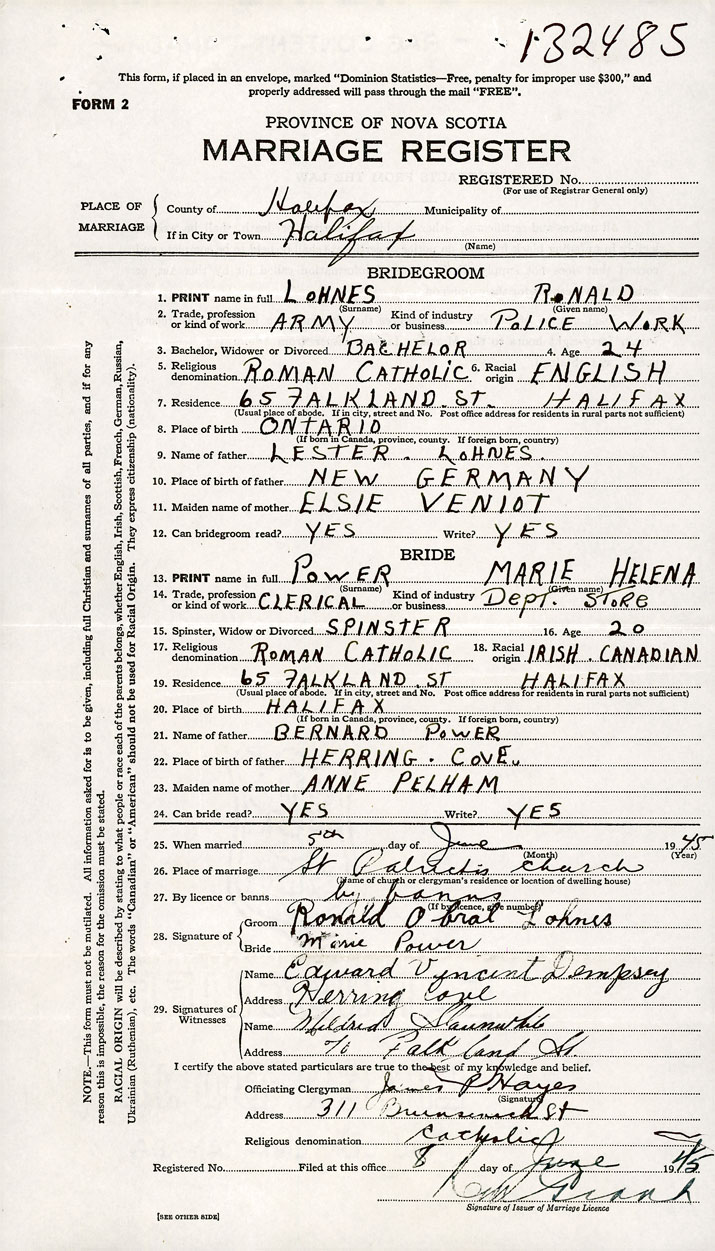 132485
This form, if placed in an envelope, marked "Dominion Statistics—Free, penalty for improper use $300," and
properly addressed will pass through the mail "FREE".
FORM 2
PROVINCE OF NOVA SCOTIA
MARRIAGE REGISTER
REGISTERED No.
(For use of Registrar General only)
PLACE OF MARRIAGE
County of Halifax Municipality of
If in City or Town Halifax
(Name)
BRIDEGROOM
1. PRINT name in full LOHNES RONALD
(Surname) (Given name)
2. Trade, profession or kind of work ARMY Kind of industry or business POLICE WORK
3. Bachelor, Widower or Divorced BACHELOR 4. Age 24
5. Religious denomination ROMAN CATHOLIC 6. Racial origin ENGLISH
7. Residence 65 FALKLAND ST. HALIFAX
(Usual place of abode. If in city, street and No. Post office address for residents in rural parts not sufficient)
8. Place of birth ONTARIO
(If born in Canada, province, county. If foreign born, country)
9. Name of father LESTER. LOHNES.
10. Place of birth of father NEW GERMANY
11. Maiden name of mother ELSIE VENIOT
12. Can bridegroom read? YES Write? YES
BRIDE
13. PRINT name in full POWER MARIE HELENA
(Surname) (Given name)
14. Trade, profession or kind of work CLERICAL Kind of industry or business DEPT. STORE
15. Spinster, Widow or Divorced SPINSTER 16. Age 20
17. Religious denomination ROMAN CATHOLIC 18. Racial origin IRISH. CANADIAN
19. Residence 65 FALKLAND. ST HALIFAX
(Usual place of abode. If in city, street and No. Post office address for residents in rural parts not sufficient)
20. Place of birth HALIFAX
(If born in Canada, province, county. If foreign born, country)
21. Name of father BERNARD POWER
22. Place of birth of father HERRING. COVE.
23. Maiden name of mother ANNE PELHAM
24. Can bride read? YES Write? YES
25. When married 5th day of June 1945
(Month) (Year)
26. Place of marriage St Patricks church
(Name of church or clergyman's residence or location of dwelling house)
27. By licence or banns by banns
(If by licence, give number)
28. Signature of
Groom Ronald Lohnes
Bride Marie Power
29. Signatures of Witnesses
Name Edward Vincent Dempsey
Address Herring Cove
Name Mildred
Address Falkland St.
I certify the above stated particulars are true to the best of my knowledge and belief.
Officiating Clergyman James P Hayes
(Signature)
Address 311 Brunswick St
Religious denomination Catholic
Registered No. Filed at this office 8 day of June 1945
Signature of Issuer of Marriage Licence
[SEE OTHER SIDE]
NOTE.—This form must not be mutilated. All information asked for is to be given, including full Christian and surnames of all parties, and if for any
reason this is impossible, the reason for the omission must be stated.
RACIAL ORIGIN will be described by stating to what people or race each of the parents belongs, whether English, Irish, Scottish, French, German, Russian,
Ukrainian (Ruthenian), etc. The words "Canadian" or "American" should not be used for Racial Origin. They express citizenship (nationality).